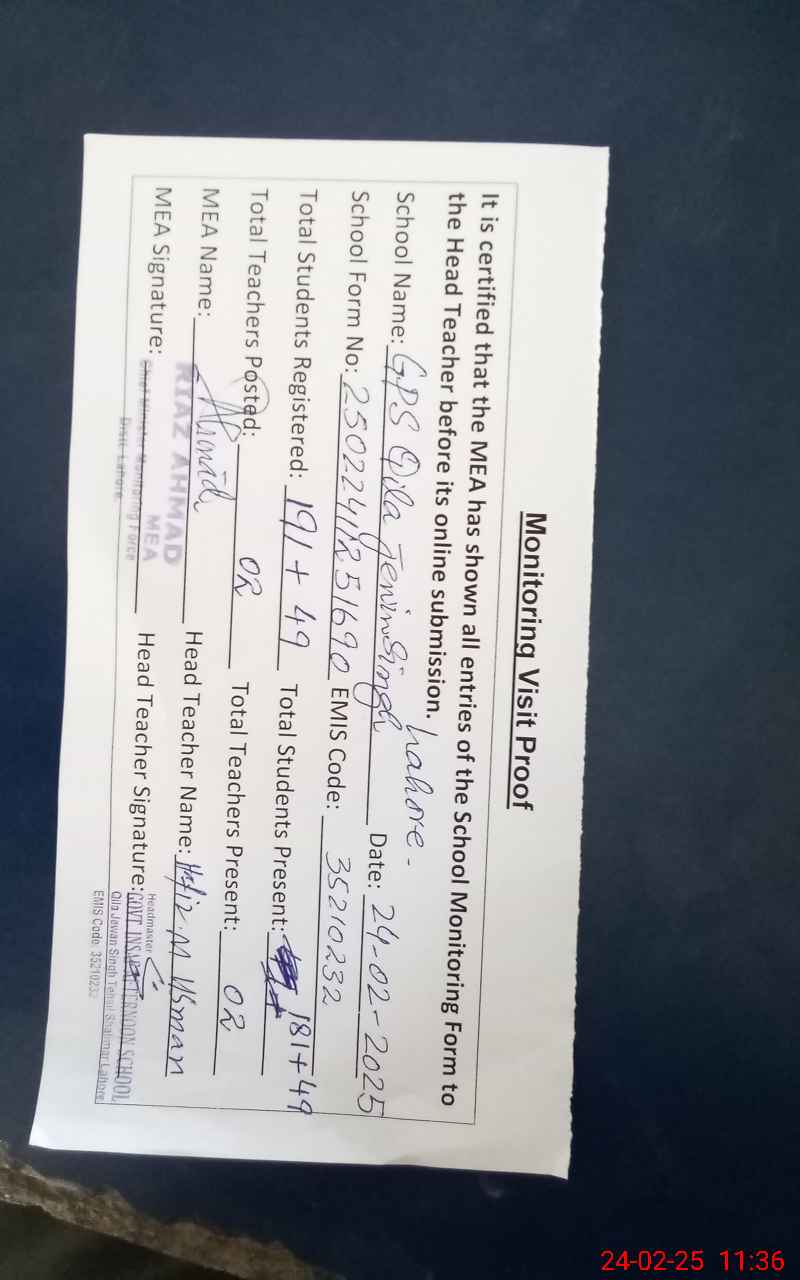 Monitoring Visit Proof
It is certified that the MEA has shown all entries of the School Monitoring Form to
the Head Teacher before its online submission.
School Name: GPS Qila Jewin Singh Lahore. Date: 24-02-2025
School Form No: EMIS Code: 35210232
Total Students Registered: 191 + 49 Total Students Present: 181+49
Total Teachers Posted: 02 Total Teachers Present: 02
MEA Name: Ahmad Head Teacher Name: Hafiz M Usman
MEA Signature: Head Teacher Signature:
RIAZ AHMAD
MEA
Chief Minister Monitoring Force
Distt. Lahore.
Headmaster
GOVT INSAF AFTERNOON SCHOOL
Qila Jewan Singh Tehsil Shalimar Lahore
EMIS Code: 35210232
24-02-25 11:36